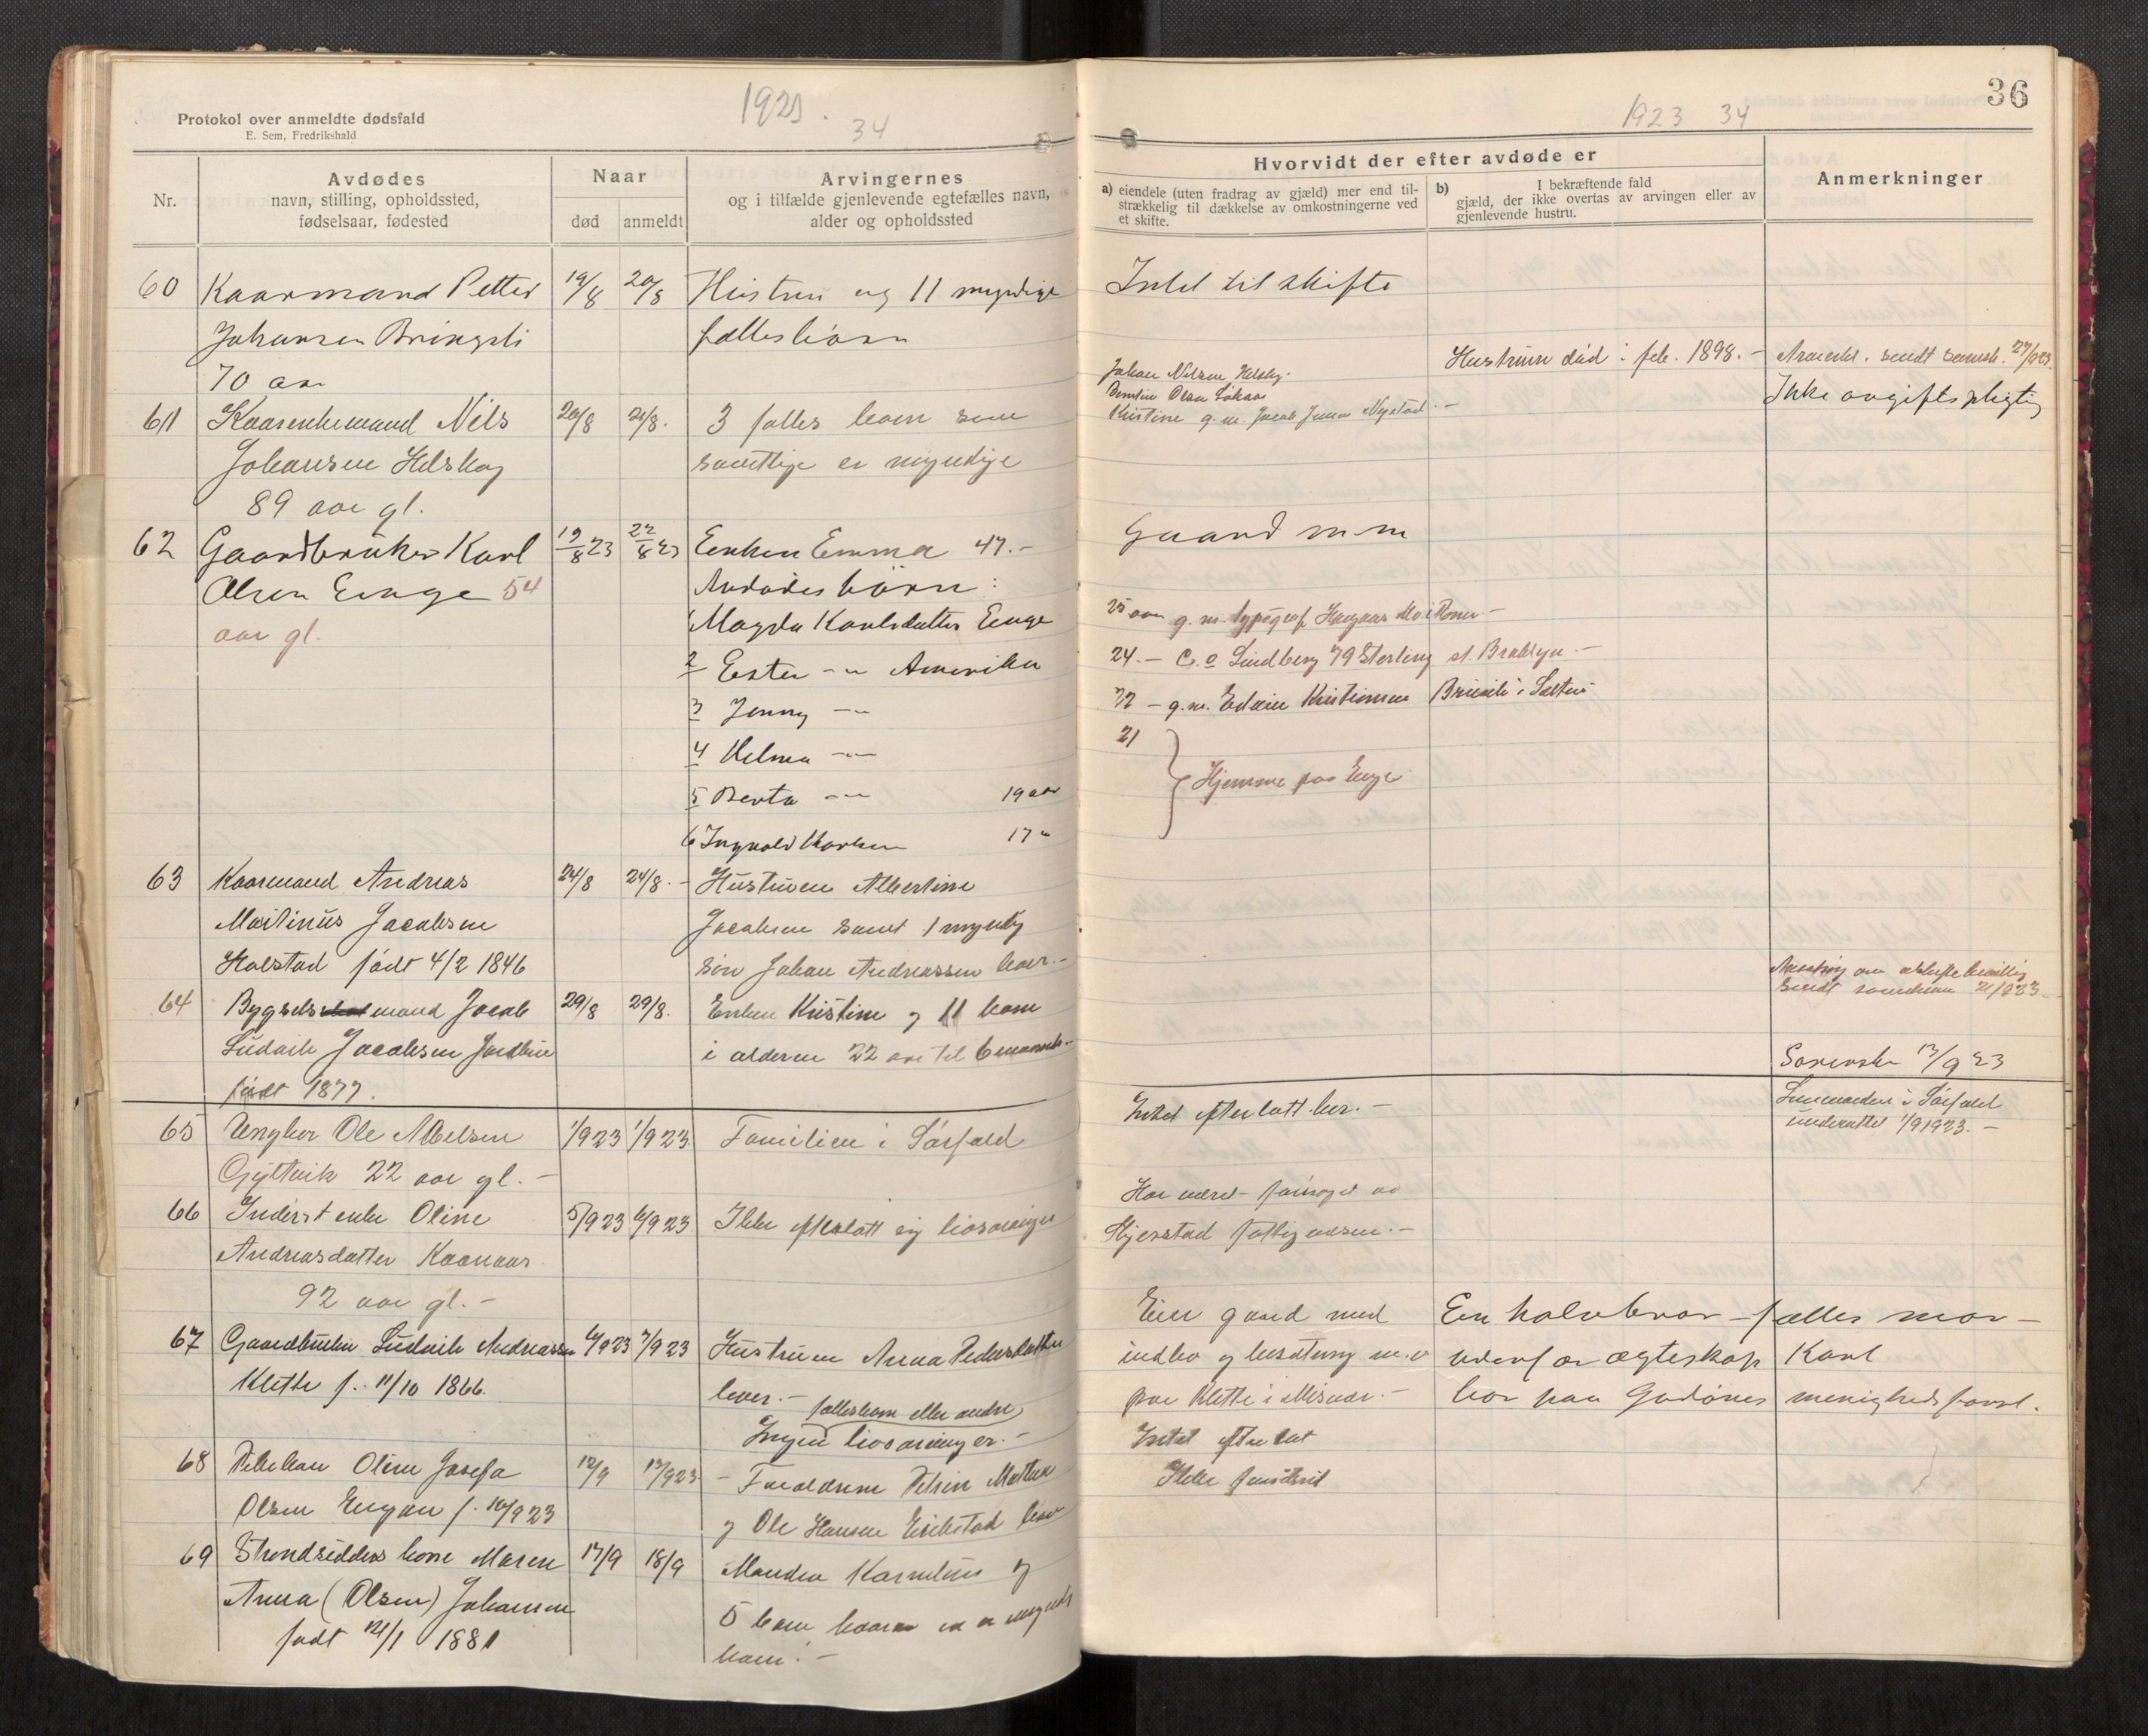 Protokol over anmeldte dødsfald
E. Sem, Fredrikshald
1923.
34
Nr.
Avdødes
navn, stilling, opholdssted,
fødselsaar, fødested
Naar
død
anmeldt
Arvingernes
og i tilfælde gjenlevende egtefælles navn,
alder og opholdssted
60 Kaarmand Petter 19/8 20/8 Hustru og 11 myndige
Johansen Bringsli fællesbörn
70 aar
61 Kaarenkemand Nils 20/8 21/8. 3 fælles barn som
Johansen Helskog samtlige er myndige
89 aar gl.
62 Gaardbruker Karl 19/8 23 22/8 23 Enken Emma 47.-
Olsen Enge 54 Avdödes börn:
aar gl. 1 Magda Karlsdatter Enge
2 Ester -"- Amerika
3 Jenny -"-
4 Helma -"-
5 Berta -"- 19 aar
6 Ingvald Karlsen 17 "
63 Kaarmand Andreas 24/8 24/8.- Hustruen Albertine
Martinus Jacobsen Jacobsen samt 1 myndig
Halstad född 4/2 1846 sön Johan Andreassen
64 Bygselsmand Jacob 29/8 29/8. Enken Kristine og 11 barn
Ludvik Jacobsen i alderen 22 aar til 6
födt 1877.
65 Ungkar Ole Abelsen 1/9 23 1/9 23 Familien i Sörfold
Gyltvik 22 aar gl.-
66 Inderst enke Oline 5/9 23 6/9 23 Ikke efterlatt sig livsarvinger
Andreasdatter
92 aar gl.-
67 Gaardbruker Ludvik Andreassen 6/9 23 7/9 23 Hustruen Anna Pedersdatter
Klette f. 11/10 1866. lever.- fællesbarn eller andre
Ingen livsarvinger.-
68 Pikebarn Oline Josefa 12/9 13/9 23 - Forældrene Mathea
Olsen Engan f. 10/9 23 og Ole Hansen
69 Strandsidders kone Maren 17/9 18/9 Manden Kornelius og
Anna (Olsen) Johansen 5 barn
födt 12/1 1881 barn.-
36
1923 34
Hvorvidt der efter avdøde er
a) eiendele (uten fradrag av gjæld) mer end til-
strækkelig til dækkelse av omkostningerne ved
et skifte.
b) I bekræftende fald
gjæld, der ikke overtas av arvingen eller av
gjenlevende hustru.
Anmerkninger
Intet til skifte
Johan Nilsen Helskog.
Kristine g.m. Jacob Nystad.-
Hustruen död i feb. 1898.-
Ikke avgiftspligtig
Gaard m.m
25 aar g.m. typograf Mo i Rana.-
24.- C.o Lindberg 79 Sterling st. Broklyn.-
22 - g.m. Kristiansen
21
Hjemme paa Enge
Intet efterlatt her.-
13/9 23
Lensmanden i Sörfold
underrettet 1/9 1923.-
Har været forsörget av
Skjerstad fattigvæsen.-
Eier gaard med
indbo og besætning m.v
paa Klette i Misvær.-
En halvbror - fælles mor -
utenfor ægteskap Karl
bor paa Godönes menighedsforst.
Intet efterlat
Ikke